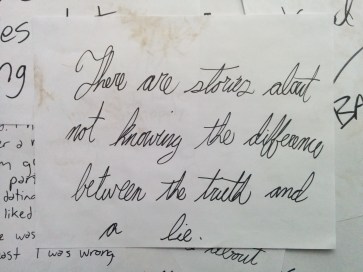 es
ng
There are stories about
not knowing the difference
between the truth and
a lie.
BA
part
dating
liked
e was
ast I was wrong
about